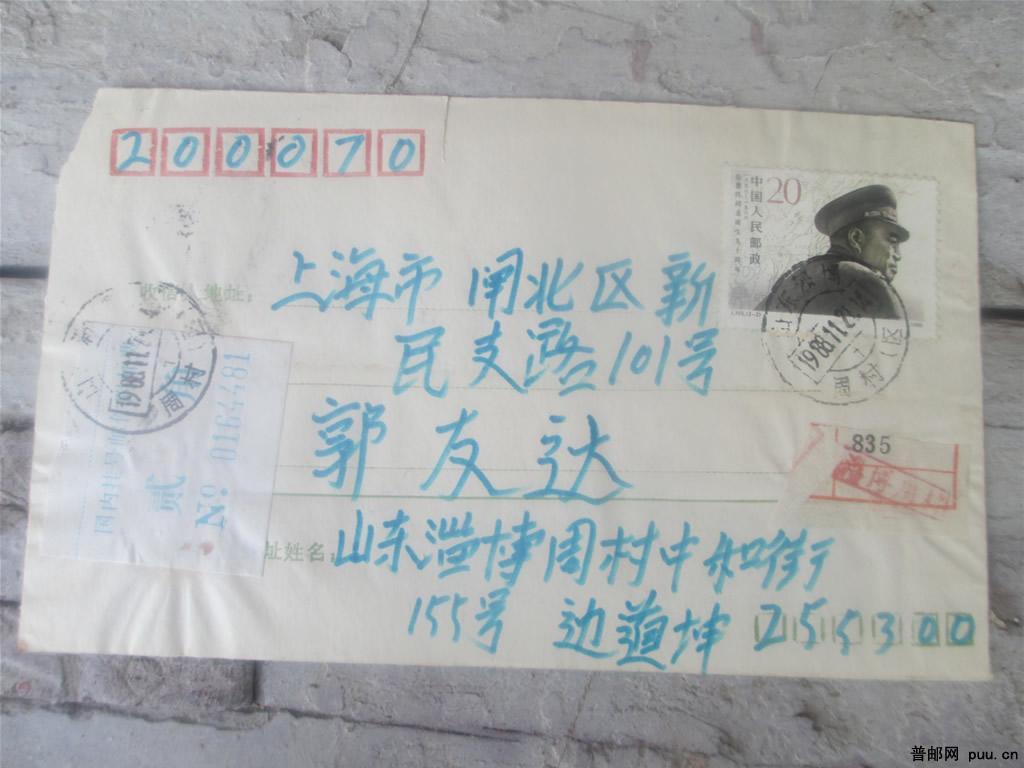 200070
中国人民邮政
20
收信人地址：
上海市 闸北区 新
民支路101号
郭友达
址姓名：
山东淄博周村中和街
155号 边道坤 255300
1988.11.2
周村
(区)
1988.11.2
周村
贰
№ 0164481
835